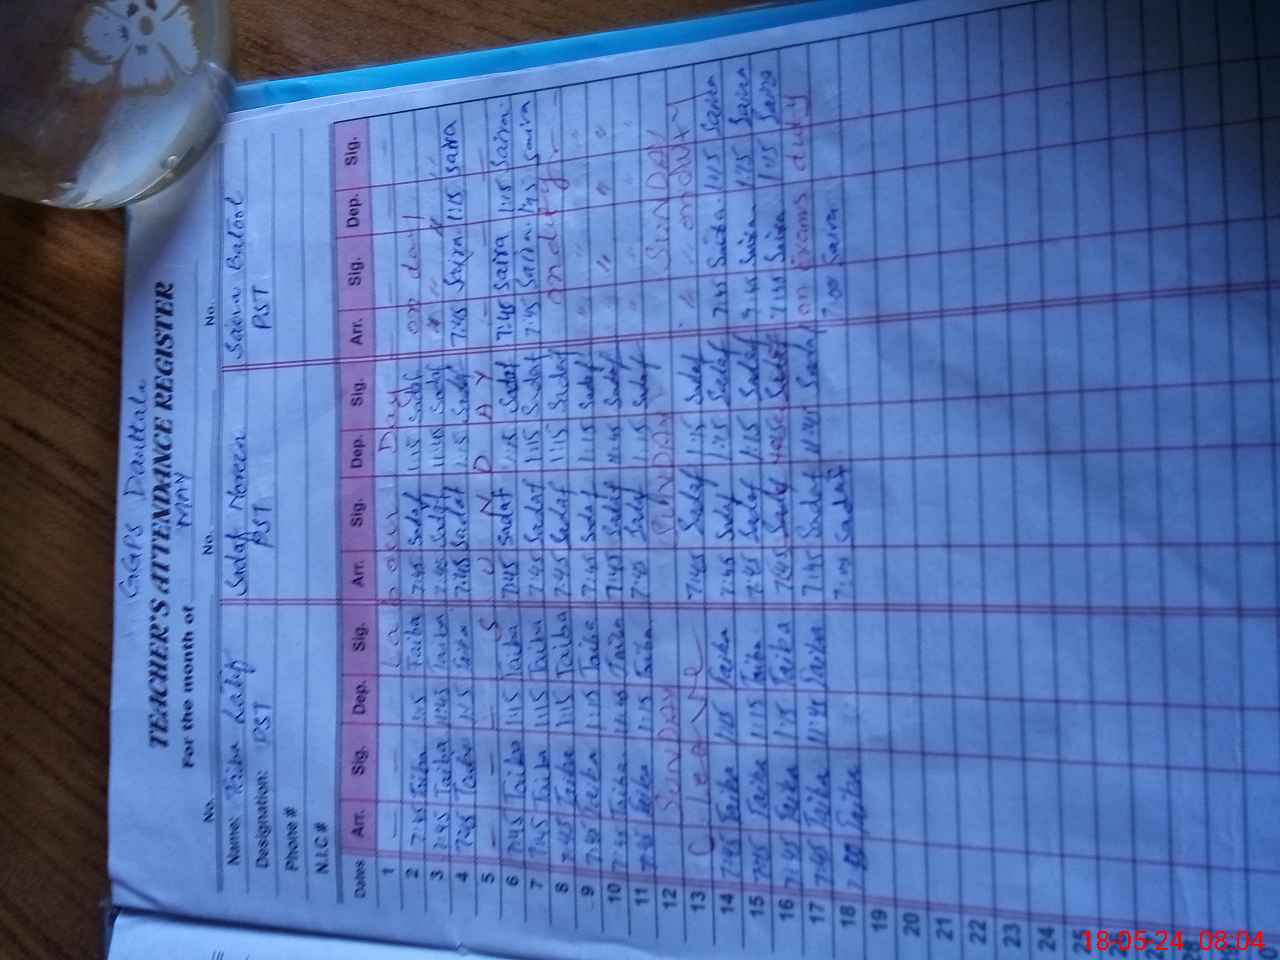 GGPS
TEACHER'S ATTENDANCE REGISTER
For the month of MAY
No. No. No.
Name: Taiba Latif Sadaf Noreen Saira Batool
Designation: PST PST PST
Phone #
N.I.C #
Dates Arr. Sig. Dep. Sig. Arr. Sig. Dep. Sig. Arr. Sig. Dep. Sig.
1 Labour Day
2 7:45 Taiba 1:15 Taiba 7:45 Sadaf 1:15 Sadaf on
3 7:45 Taiba 11:45 Taiba 7:45 Sadaf 11:45 Sadaf " " "
4 7:45 Taiba 1:15 Taiba 7:45 Sadaf 1:15 Sadaf 7:45 Saira 1:15 Saira
5 S U N D A Y
6 7:45 Taiba 1:15 Taiba 7:45 Sadaf 1:15 Sadaf 7:45 Saira 1:15 Saira
7 7:45 Taiba 1:15 Taiba 7:45 Sadaf 1:15 Sadaf 7:45 Saira Saira
8 7:45 Taiba 1:15 Taiba 7:45 Sadaf 1:15 Sadaf on duty
9 7:45 Taiba 1:15 Taiba 7:45 Sadaf 1:15 Sadaf " " "
10 7:45 Taiba 11:45 Taiba 7:45 Sadaf 11:45 Sadaf " " "
11 7:45 Taiba 1:15 Taiba 7:45 Sadaf 1:15 Sadaf " " "
12 SUNDAY SUNDAY SUNDAY
13 C Leave 7:45 Sadaf 1:15 Sadaf " " on duty
14 7:45 Taiba 1:15 Taiba 7:45 Sadaf 1:15 Sadaf 7:45 Saira 1:15 Saira
15 7:45 Taiba 1:15 Taiba 7:45 Sadaf 1:15 Sadaf 7:45 Saira 1:15 Saira
16 7:45 Taiba 1:15 Taiba 7:45 Sadaf Sadaf 7:45 Saira 1:15 Saira
17 7:45 Taiba 11:45 Taiba 7:45 Sadaf 11:45 Sadaf on Exams duty
18 Taiba Sadaf 7:00 Saira
19
20
21
22
23
24
25
18-05-24 08:04